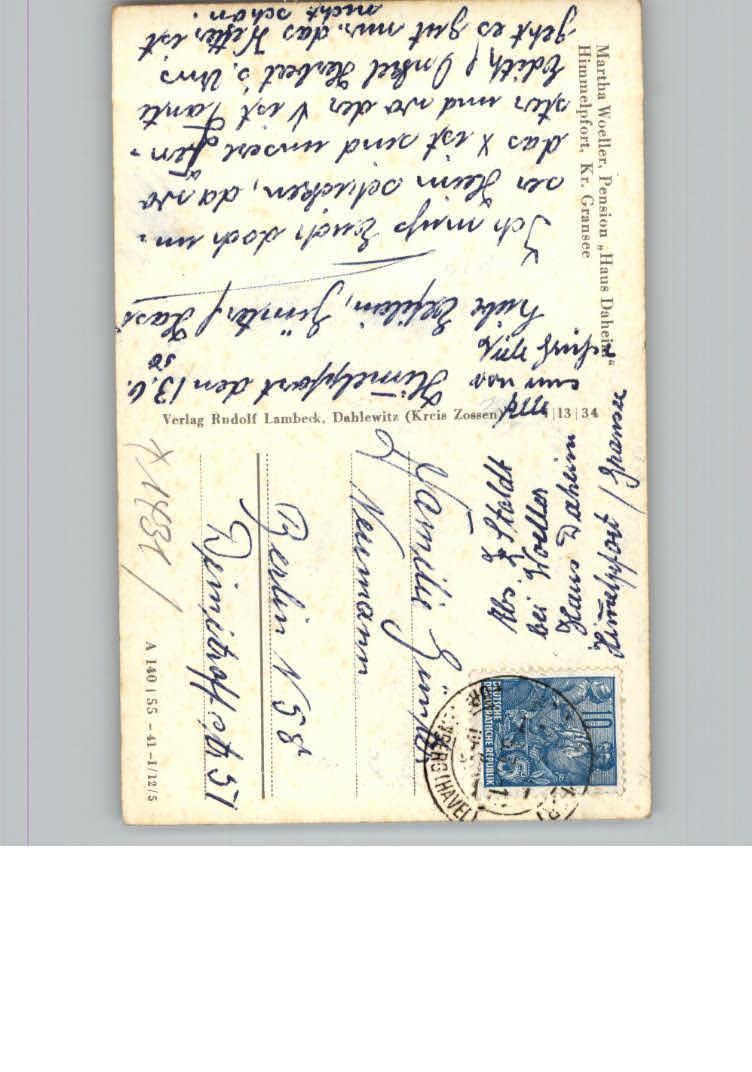 Martha Woeller, Pension „Haus Daheim“
Himmelpfort, Kr. Gransee
Himmelpfort den 13.6.
58
Liebe Günter
Ich muß Euch doch un-
ser Heim schicken, da wo
das x ist sind unsere Fen-
ster und wo der V ist Tante
Edith & Onkel Herbert s. Uns
geht es gut nur das Wetter ist
nicht schön.
Verlag Rudolf Lambeck, Dahlewitz (Kreis Zossen) 13 | 34
Abs. E Stoldt
bei Woeller
Haus Daheim
Himmelpfort / Gransee
Familie Günter
Neumann
Berlin N 58
Dimitroffstr 51
A 140 | 55 – 41 –1/12/5
DEUTSCHE
DEMOKRATISCHE REPUBLIK
10
(HAVEL)